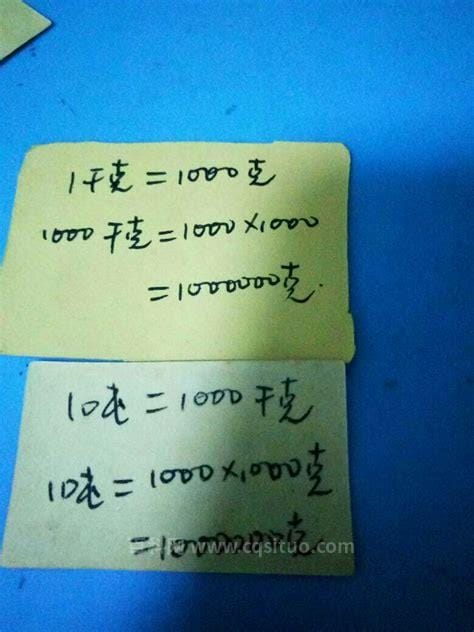 1千克=1000克
1000千克=1000×1000
=1000000克.
10吨=1000千克
10吨=1000×1000克
www.cqsituo.com